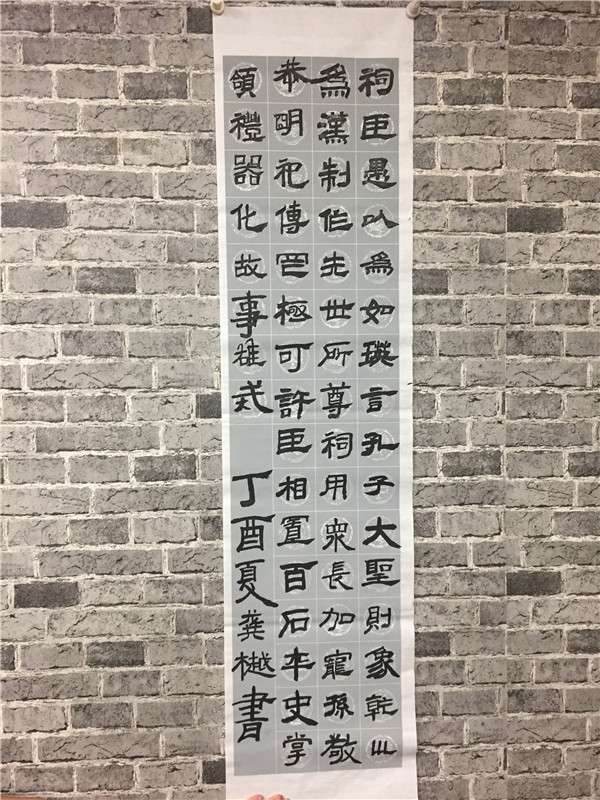 祠臣愚以為如瑛言孔子大聖則象乾巛
為漢制作先世所尊祠用眾長加寵孫敬
恭明祀傳罔極可許臣相置百石卒史掌
領禮器化故事雄戒
丁酉夏龔樾書